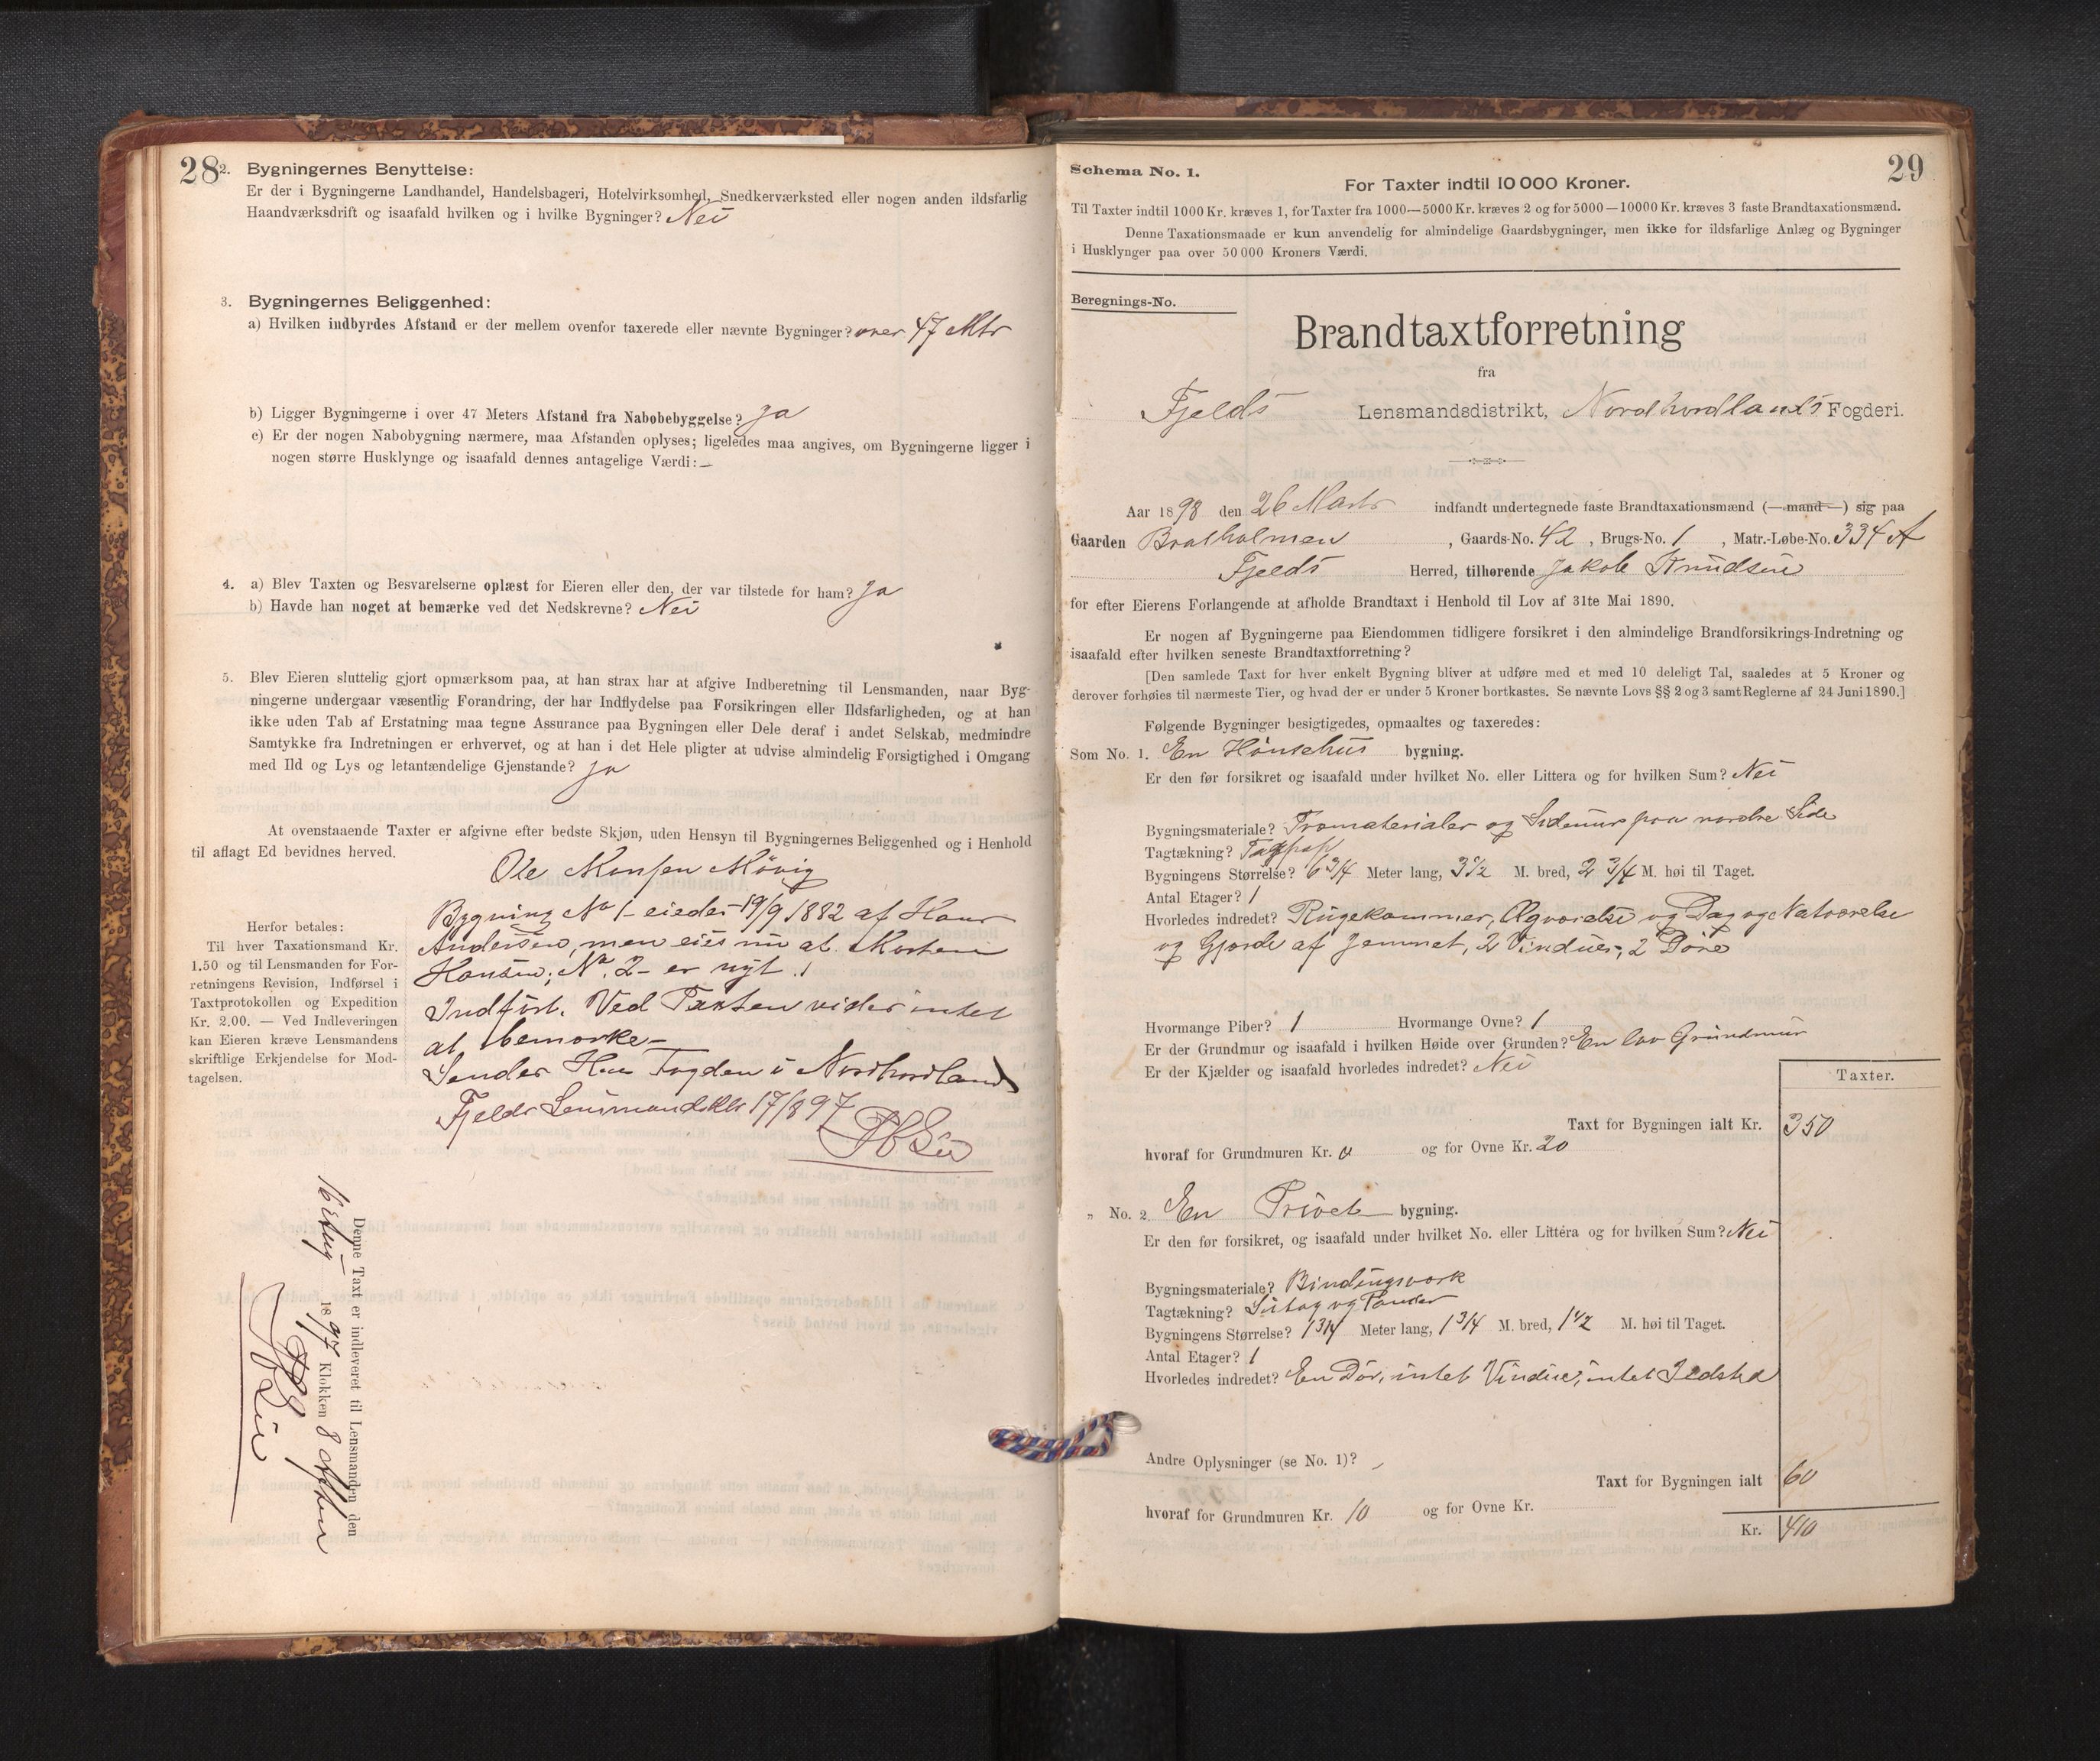 28
2. Bygningernes Benyttelse:
Er der i Bygningerne Landhandel, Handelsbageri, Hotelvirksomhed, Snedkerværksted eller nogen anden ildsfarlig
Haandværksdrift og isaafald hvilken og i hvilke Bygninger? Nei
3. Bygningernes Beliggenhed:
a) Hvilken indbyrdes Afstand er der mellem ovenfor taxerede eller nævnte Bygninger? over 47 Mtr
b) Ligger Bygningerne i over 47 Meters Afstand fra Nabobebyggelse? Ja
c) Er der nogen Nabobygning nærmere, maa Afstanden oplyses; ligeledes maa angives, om Bygningerne ligger i
nogen større Husklynge og isaafald dennes antagelige Værdi: –
4. a) Blev Taxten og Besvarelserne oplæst for Eieren eller den, der var tilstede for ham? Ja
b) Havde han noget at bemærke ved det Nedskrevne? Nei
5. Blev Eieren sluttelig gjort opmærksom paa, at han strax har at afgive Indberetning til Lensmanden, naar Byg-
ningerne undergaar væsentlig Forandring, der har Indflydelse paa Forsikringen eller Ildsfarligheden, og at han
ikke uden Tab af Erstatning maa tegne Assurance paa Bygningen eller Dele deraf i andet Selskab, medmindre
Samtykke fra Indretningen er erhvervet, og at han i det Hele pligter at udvise almindelig Forsigtighed i Omgang
med Ild og Lys og letantændelige Gjenstande? Ja
At ovenstaaende Taxter er afgivne efter bedste Skjøn, uden Hensyn til Bygningernes Beliggenhed og i Henhold
til aflagt Ed bevidnes herved.
Ole Monsen Møvig
Herfor betales:
Til hver Taxationsmand Kr.
1.50 og til Lensmanden for For-
retningens Revision, Indførsel i
Taxtprotokollen og Expedition
Kr. 2.00. — Ved Indleveringen
kan Eieren kræve Lensmandens
skriftlige Erkjendelse for Mod-
tagelsen.
Bygning No 1 – eiedes 19/9 1882 af Hans
Andersen, men eies nu af Morten
Hansen; No. 2 – er nyt.
Indført. Ved Taxten vides intet
at bemærke –
Sendes Hrr Fogden i Nordhordland
Fjelds Lensmandsktr 17/8 97
Denne Taxt er indleveret til Lensmanden den
16 Aug 1897 Klokken 8 Aften
29
Schema No. 1.
For Taxter indtil 10 000 Kroner.
Til Taxter indtil 1000 Kr. kræves 1, for Taxter fra 1000—5000 Kr. kræves 2 og for 5000—10000 Kr. kræves 3 faste Brandtaxationsmænd.
Denne Taxationsmaade er kun anvendelig for almindelige Gaardsbygninger, men ikke for ildsfarlige Anlæg og Bygninger
i Husklynger paa over 50 000 Kroners Værdi.
Beregnings-No.
Brandtaxtforretning
fra
Fjelds Lensmandsdistrikt, Nordhordlands Fogderi.
Aar 1898 den 26 Marts indfandt undertegnede faste Brandtaxationsmænd (—mand—) sig paa
Gaarden Bratholmen, Gaards-No. 42, Brugs-No. 1, Matr.-Løbe-No. 334 A
Fjelds Herred, tilhørende Jakob Knudsen
for efter Eierens Forlangende at afholde Brandtaxt i Henhold til Lov af 31te Mai 1890.
Er nogen af Bygningerne paa Eiendommen tidligere forsikret i den almindelige Brandforsikrings-Indretning og
isaafald efter hvilken seneste Brandtaxtforretning?
[Den samlede Taxt for hver enkelt Bygning bliver at udføre med et med 10 deleligt Tal, saaledes at 5 Kroner og
derover forhøies til nærmeste Tier, og hvad der er under 5 Kroner bortkastes. Se nævnte Lovs §§ 2 og 3 samt Reglerne af 24 Juni 1890.]
Følgende Bygninger besigtigedes, opmaaltes og taxeredes:
Som No. 1. En Hønsehus bygning.
Er den før forsikret og isaafald under hvilket No. eller Littera og for hvilken Sum? Nei
Bygningsmateriale? Træmaterialer og Sidemur paa nordre Side
Tagtækning? Tagpap
Bygningens Størrelse? 6 3/4 Meter lang, 3 1/2 M. bred, 2 3/4 M. høi til Taget.
Antal Etager? 1
Hvorledes indredet? Rugekammer, Ægværelse og Dag og Natværelse
og Gjærde af Jernnet, 2 Vinduer, 2 Døre
Hvormange Piber? 1 Hvormange Ovne? 1
Er der Grundmur og isaafald i hvilken Høide over Grunden? En lav Grundmur
Er der Kjælder og isaafald hvorledes indredet? Nei
Taxter.
Taxt for Bygningen ialt Kr. 350
hvoraf for Grundmuren Kr. 0 og for Ovne Kr. 20
„ No. 2. En Privet bygning.
Er den før forsikret, og isaafald under hvilket No. eller Littera og for hvilken Sum? Nei
Bygningsmateriale? Bindingsværk
Tagtækning? Sutag og Pander
Bygningens Størrelse? 1 3/4 Meter lang, 1 3/4 M. bred, 1 1/2 M. høi til Taget.
Antal Etager? 1
Hvorledes indredet? En Dør, intet Vindue, intet Ildsted
Andre Oplysninger (se No. 1)?
Taxt for Bygningen ialt 60
hvoraf for Grundmuren Kr. 10 og for Ovne Kr.
Kr. 410